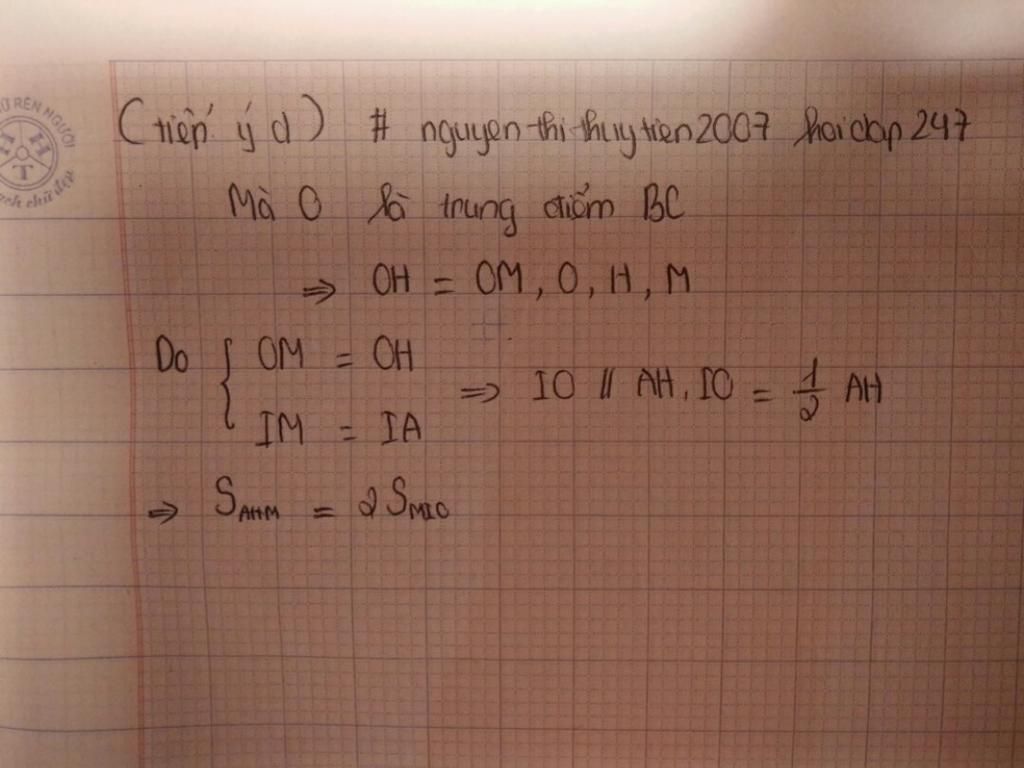 Ử RÈN NGƯỜI
H H
T
ạch chữ đẹp
(tiếp ý d) # nguyen-thi-thuytien2007 hoidap247
Mà O là trung điểm BC
⇒ OH = OM, O, H, M
Do { OM = OH
IM = IA
⇒ IO // AH, IO = 1/2 AH
⇒ S_AHM = 2 S_MIO